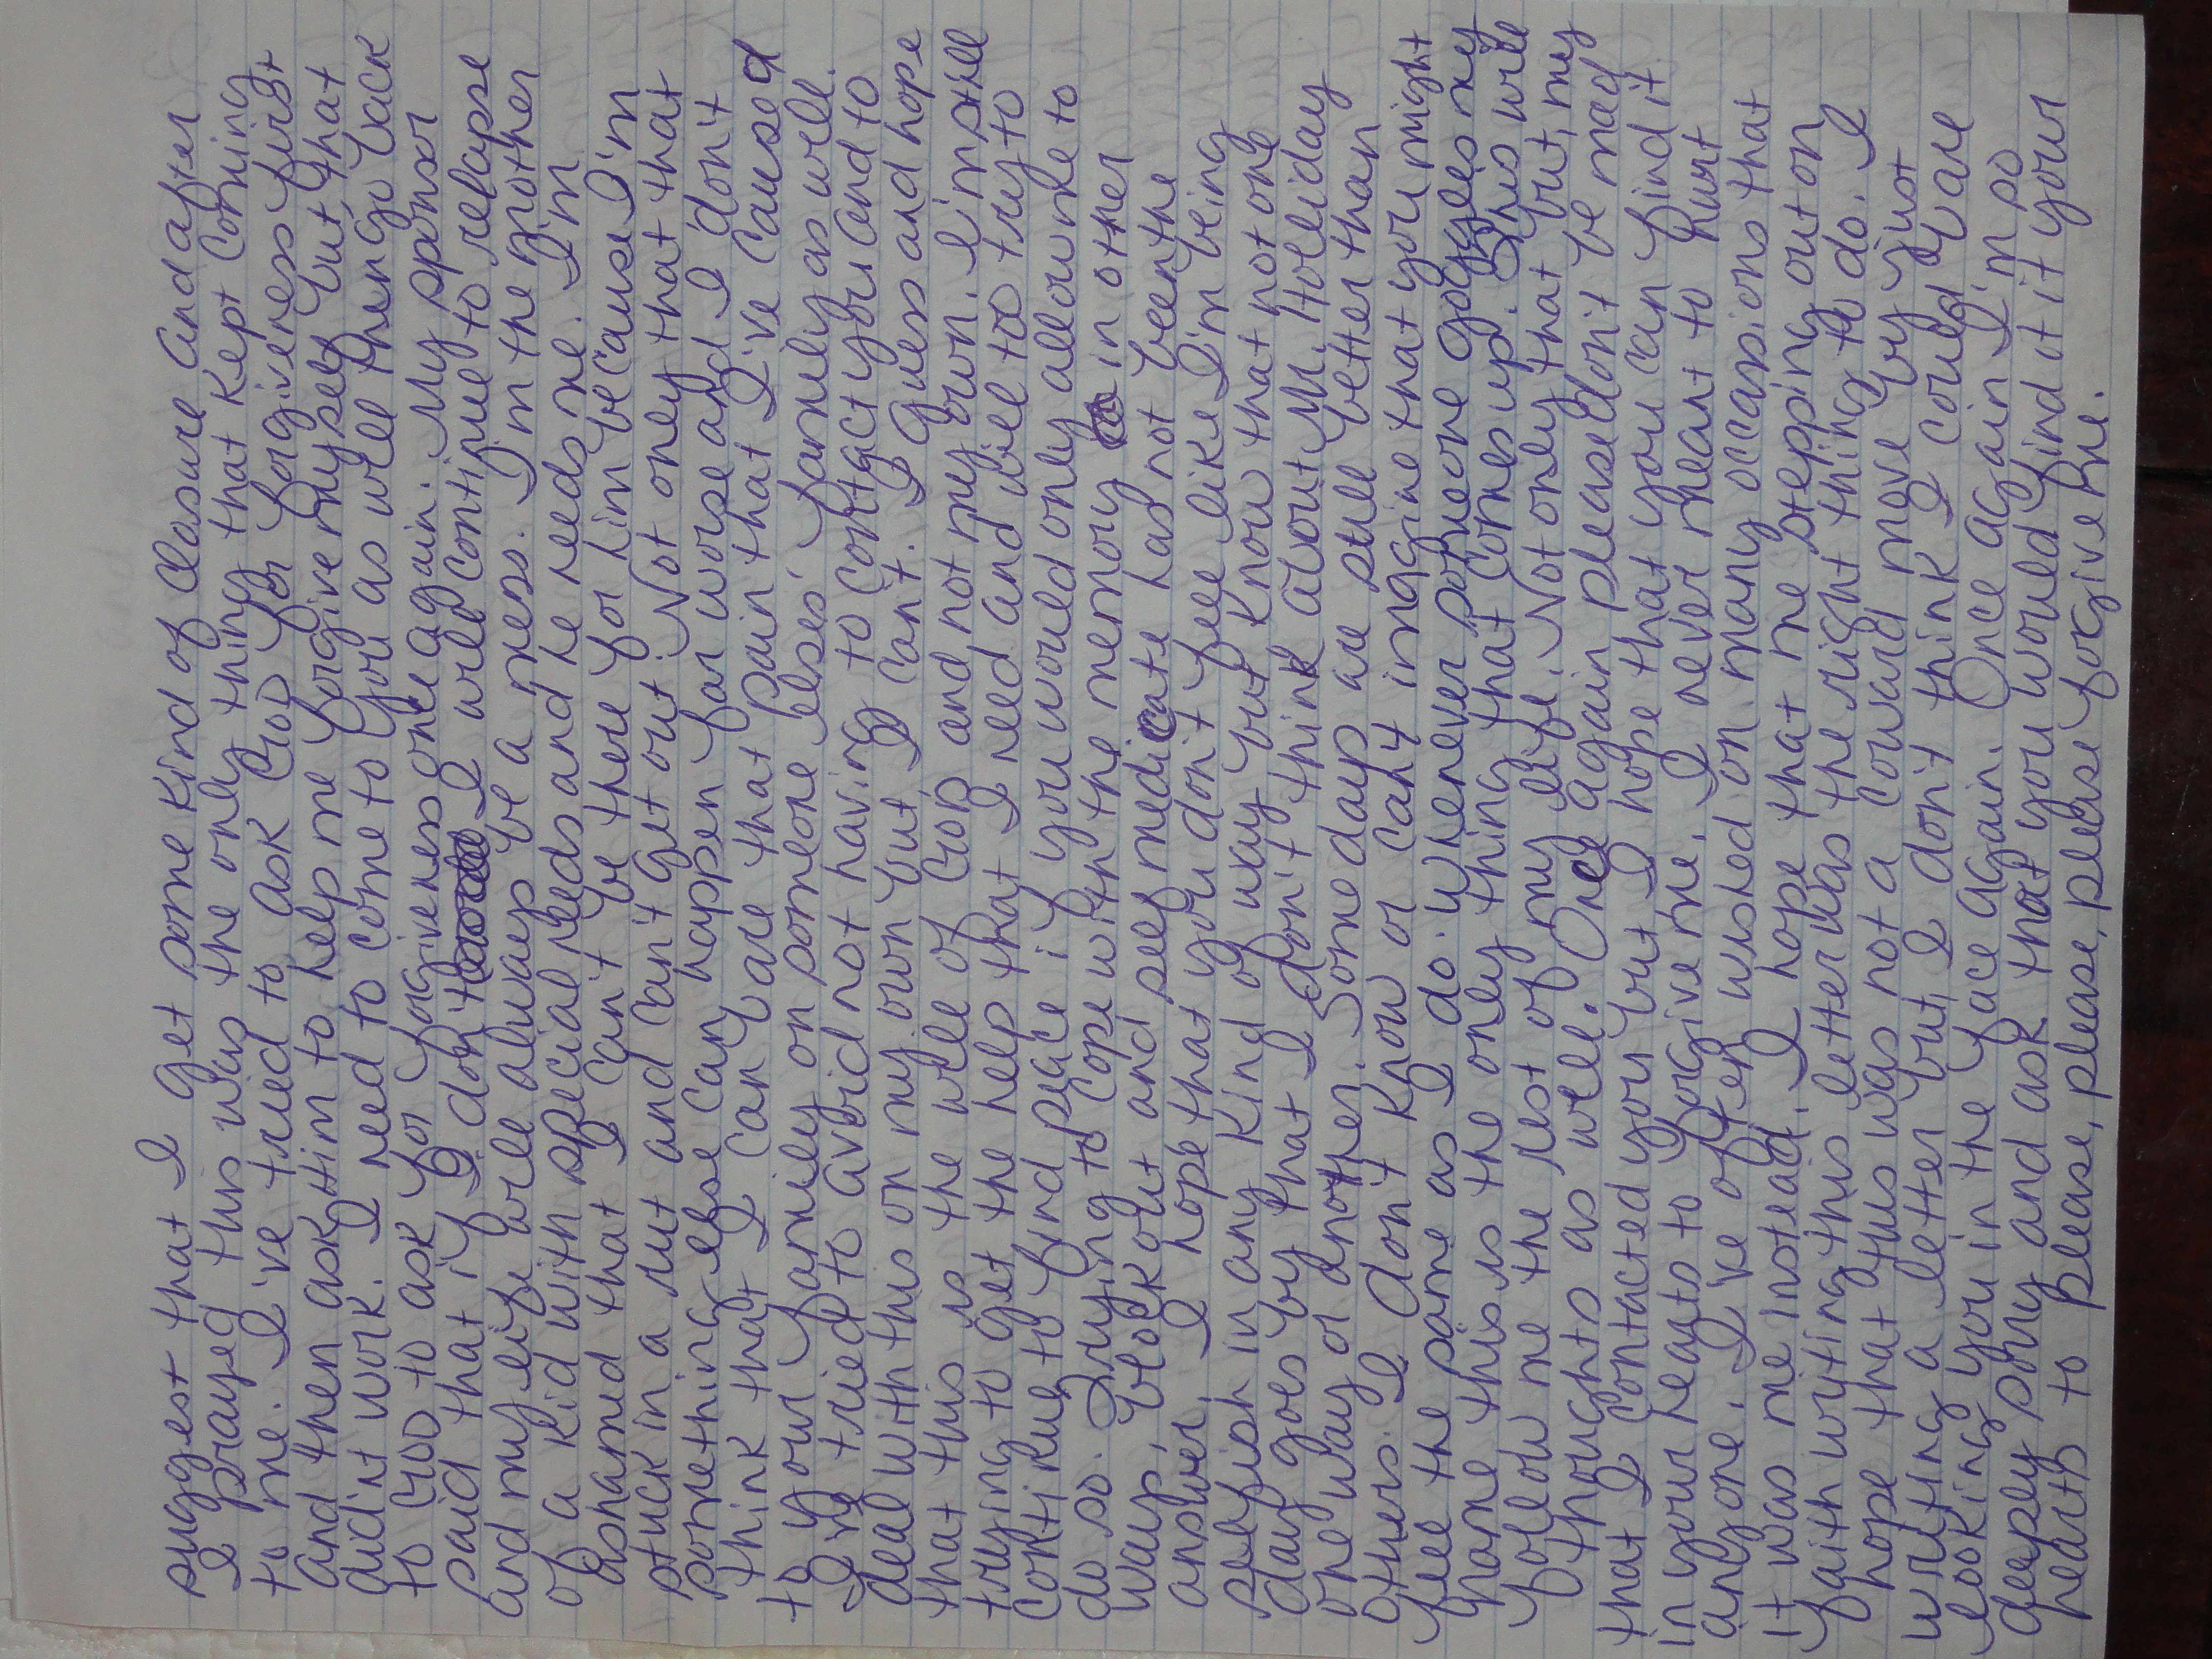 suggest that I get some kind of closure and after
I prayed this was the only thing that kept coming
to me. I've tried to ask GOD for forgiveness first
and then ask Him to help me forgive myself but, that
didn't work. I need to come to you as well then go back
to GOD to ask for forgiveness once again. My sponsor
said that if I don't I will continue to relapse
and my life will always be a mess. I'm the mother
of a kid with special needs and he needs me. I'm
ashamed that I can't be there for him because I'm
stuck in a rut and can't get out. Not only that that
something else can happen far worse and I don't
think that I can bare that pain that I've caused
to your family on someone elses' family as well.
I've tried to avoid not having to contact you and to
deal with this on my own but I can't. I guess and hope
that this is the will of GOD and not my own. I'm still
trying to get the help that I need and will too try to
continue to find peace if you would only allow me to
do so. Trying to cope with the memory in other
ways, block out and self medicate has not been the
answer. I hope that you don't feel like I'm being
selfish in any kind of way but know that not one
day goes by that I don't think about M. Holliday
one way or another. Some days are still better than
others. I don't know or can't imagine that you might
feel the same as I do. Whenever someone googles my
name this is the only thing that comes up. This will
follow me the rest of my life. Not only that but, my
thoughts as well. Once again please don't be mad
that I contacted you but I hope that you can find it
in your hearts to forgive me. I never meant to hurt
anyone. I've often wished on many occassions that
it was me instead. I hope that me stepping out on
faith writing this letter was the right thing to do. I
hope that this was not a coward move by just
writting a letter but, I don't think I could bare
looking you in the face again. Once again I'm so
deeply sorry and ask that you would find it it your
hearts to please, please, please forgive me.